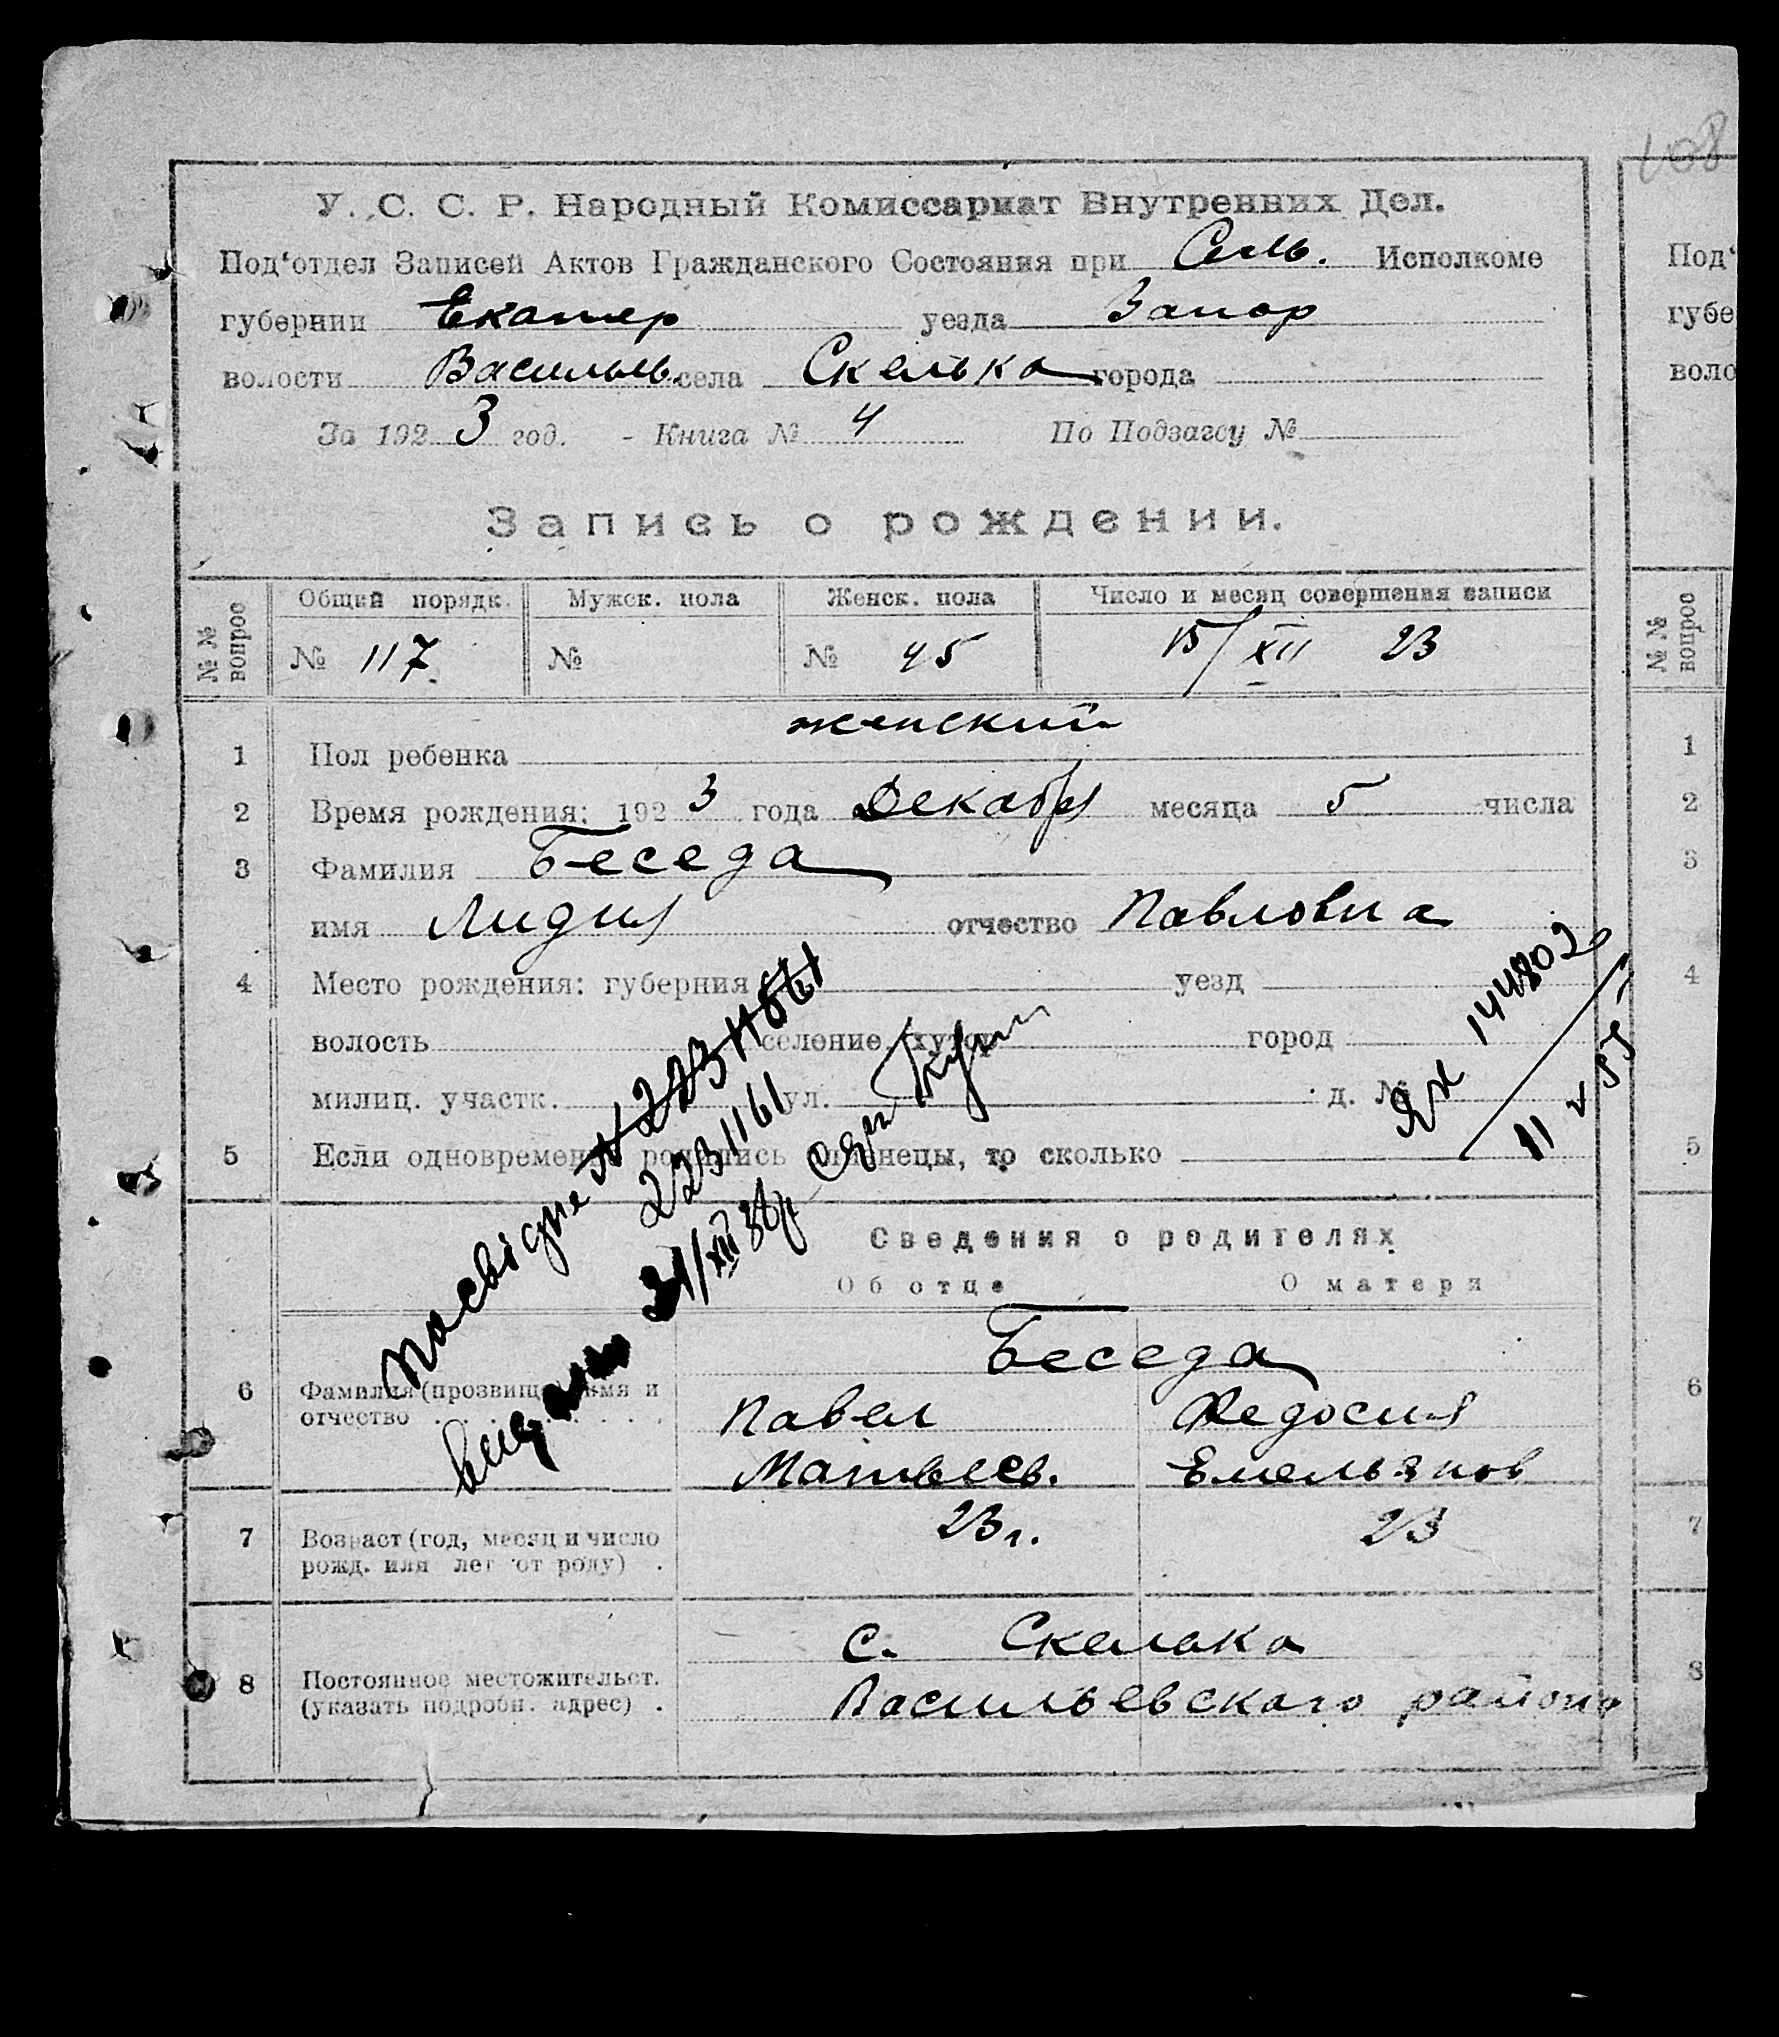 108
У. С. С. Р. Народный Комиссариат Внутренних Дел.
Под‘отдел Записей Актов Гражданского Состояния при Сель. Исполкоме
губернии Екатер уезда Запор
волости Васильев. села Скелька города
За 1923 год. - Книга № 4 По Подзагсу №
Запись о рождении.
№ № вопрос
Общий порядк. Мужск. пола Женск. пола Число и месяц совершения записи
№ 117. № № 45 15/XII 23
1 Пол ребенка женский
2 Время рождения: 1923 года Декабря месяца 5 числа
3 Фамилия Беседа
имя Лидия отчество Павловна
4 Место рождения: губерния уезд
волость селение, хутор город
милиц. участк. ул. д. №
5 Если одновременно родились близнецы, то сколько
Посвідчне № 22311561
2231161
видано 31/XII 38р
ЯХ 144802
11 V 55
Сведения о родителях
Об отце О матери
6 Фамилия (прозвище) имя и
отчество
Беседа
Павел Федосия
Матвеев. Емельянов
7 Возраст (год, месяц и число
рожд. или лет от роду) .
23 г. 23
8 Постоянное местожительст.
(указать подробн. адрес) .
с. Скелька
Васильевского района
Под‘
губе
воло
№ № вопрос
1
2
3
4
5
6
7
8